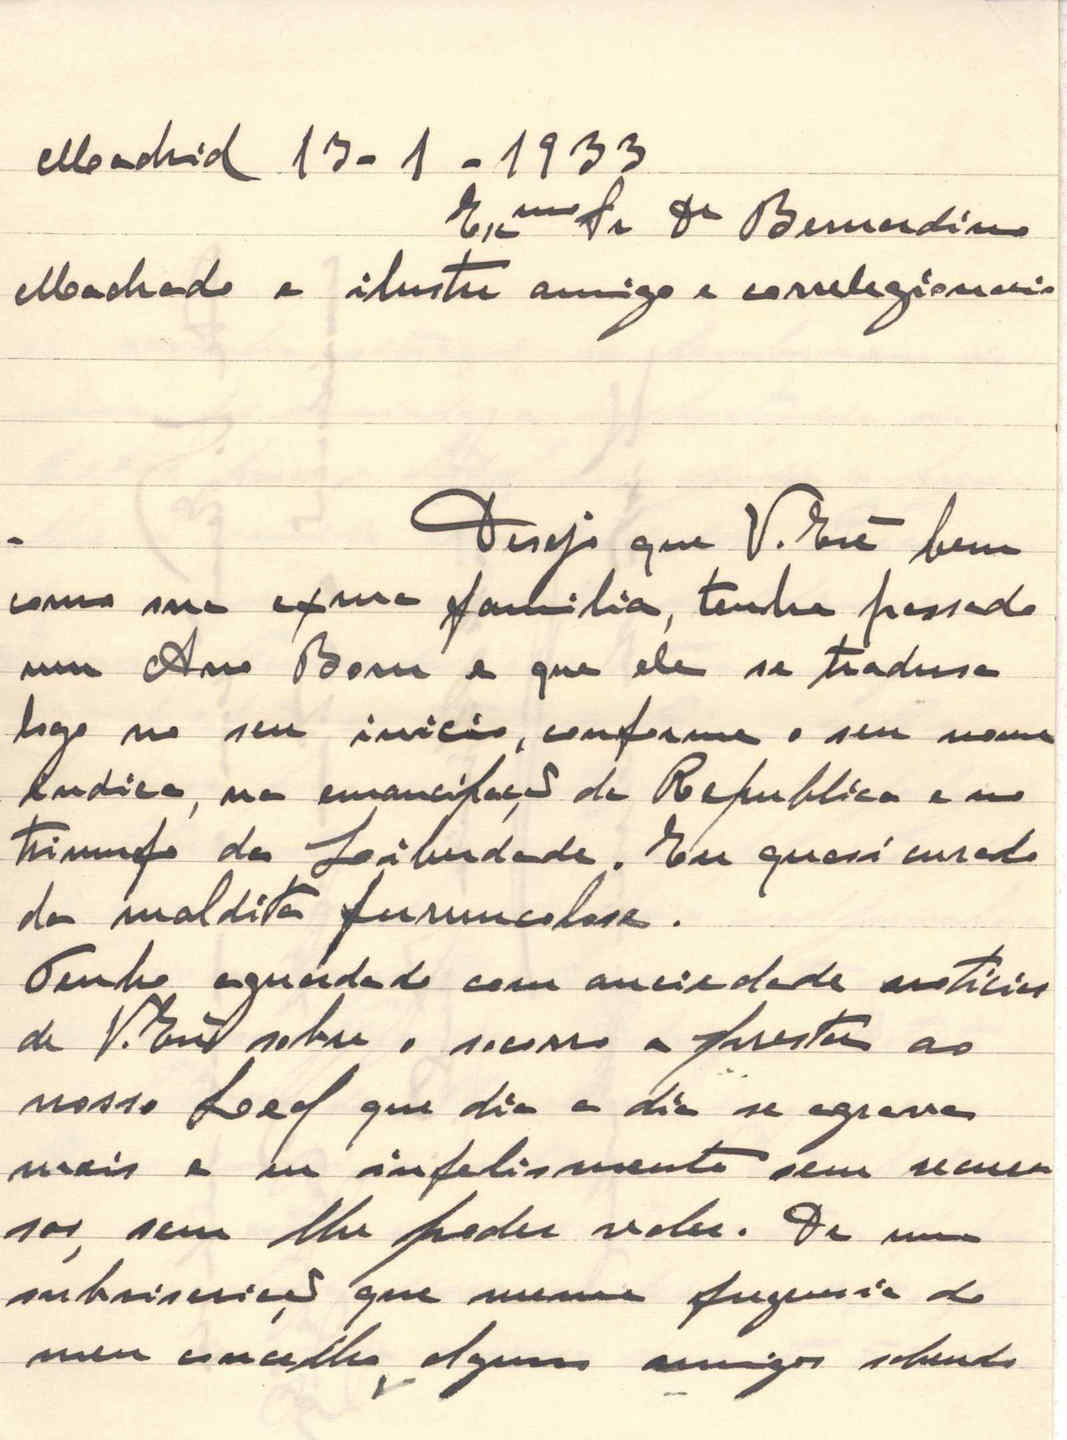 Madrid 13-1-1933
Exmo Sr Dr Bernardino
Machado e ilustre amigo e correlegionario
Desejo que V. Exª bem
como sua exma familia, tenha passado
um Ano Bom e que ele se tradusa
logo no seu inicio, conforme o seu nome
indica, na emancipação da Republica e no
triunfo da Leiberdade. Eu quasi curado
da maldita furunculose.
Tenho aguardado com anciedade noticias
de V. Exª sobre o socorro a prestar ao
nosso Leal que dia a dia se agrava
mais e eu infelismente sem recur
sos, sem lhe poder valer. De uma
subriscrição que numa freguesia do
meu concelho, alguns amigos sabendo